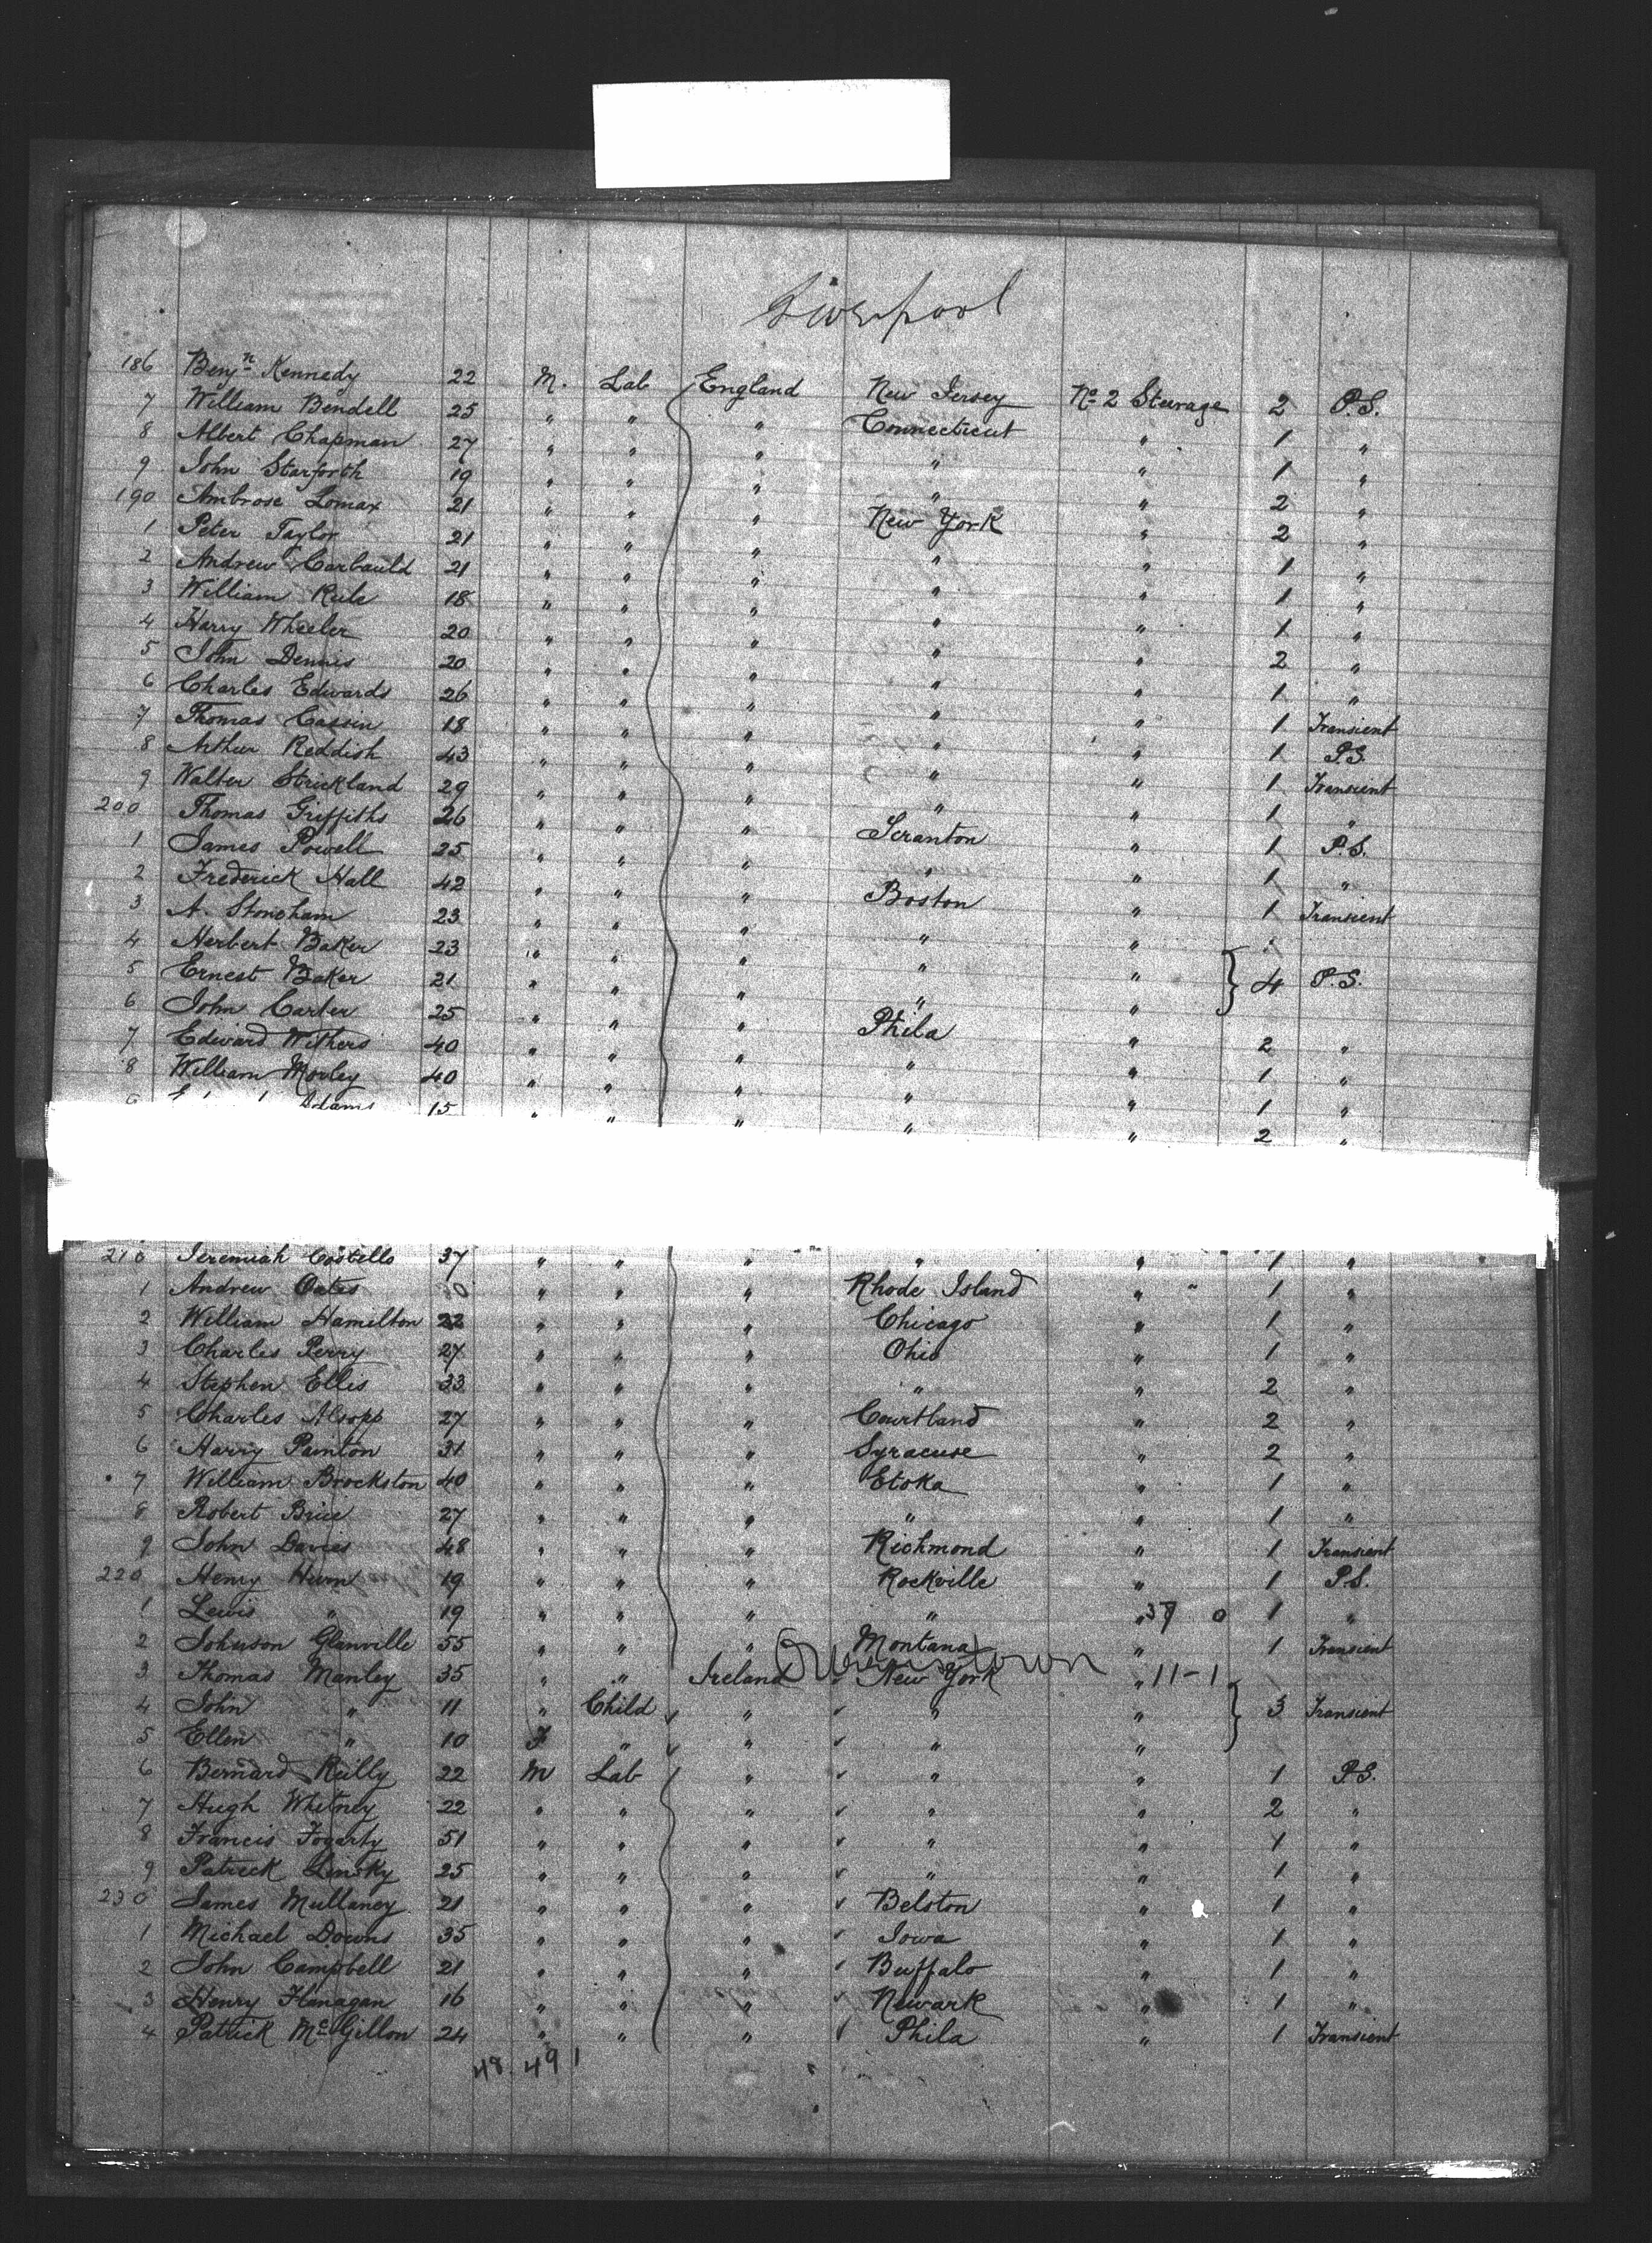 Liverpool
186 Benjn Kennedy 22 M. Lab England New Jersey No 2 Steerage 2 P.S.
7 William Bendell 25 " " " Connecticut " 1 "
8 Albert Chapman 27 " " " " " 1 "
9 John Starforth 19 " " " " " 2 "
190 Ambrose Lomax 21 " " " New York " 2 "
1 Peter Taylor 21 " " " " " 1 "
2 Andrew Carbauld 21 " " " " " 1 "
3 William Rule 18 " " " " " 1 "
4 Harry Wheeler 20 " " " " " 2 "
5 John Dennis 20 " " " " " 1 "
6 Charles Edwards 26 " " " " " 1 Transient
7 Thomas Cassin 18 " " " " " 1 P.S.
8 Arthur Reddish 43 " " " " " 1 Transient
9 Walter Strickland 29 " " " " " 1 "
200 Thomas Griffiths 26 " " " Scranton " 1 P.S.
1 James Powell 25 " " " " " 1 "
2 Frederick Hall 42 " " " Boston " 1 Transient
3 A. Stoneham 23 " " " " "
4 Herbert Baker 23 " " " " " } 4 P.S.
5 Ernest Baker 21 " " " " "
6 John Carter 25 " " " Phila " 2 "
7 Edward Withers 40 " " " " " 1 "
8 William Morley 40 " " " " " 1 "
Adams 15 " " " " " 2 "
210 Jeremiah Costello 37 " " " " " 1 "
1 Andrew Oates " " " Rhode Island " " 1 "
2 William Hamilton 22 " " " Chicago " 1 "
3 Charles Perry 27 " " " Ohio " 1 "
4 Stephen Ellis 33 " " " " " 2 "
5 Charles Alsopp 27 " " " Courtland " 2 "
6 Harry Painton 31 " " " Syracuse " 2 "
7 William Brockston 40 " " " Etoka " 1 "
8 Robert Brice 27 " " " " " 1 "
9 John Davies 48 " " " Richmond " 1 Transient
220 Henry Hurn 19 " " " Rockville " 1 P.S.
1 Lewis " 19 " " " " " 37 0 1 "
2 Johnson Glanville 55 " " " Montana " 1 Transient
Queenstown
3 Thomas Manley 35 " " Ireland New York " 11-1
4 John " 11 " Child " " " } 3 Transient
5 Ellen " 10 F " " " "
6 Bernard Reilly 22 M Lab " " " 1 P.S.
7 Hugh Whitney 22 " " " " " 2 "
8 Francis Fogarty 51 " " " " " 1 "
9 Patrick Linsky 25 " " " " " 1 "
230 James Mullaney 21 " " " Belston " 1 "
1 Michael Downs 35 " " " Iowa " 1 "
2 John Campbell 21 " " " Buffalo " 1 "
3 Henry Flanagan 16 " " " Newark " 1 "
4 Patrick McGillon 24 " " " Phila " 1 Transient
48. 49 1